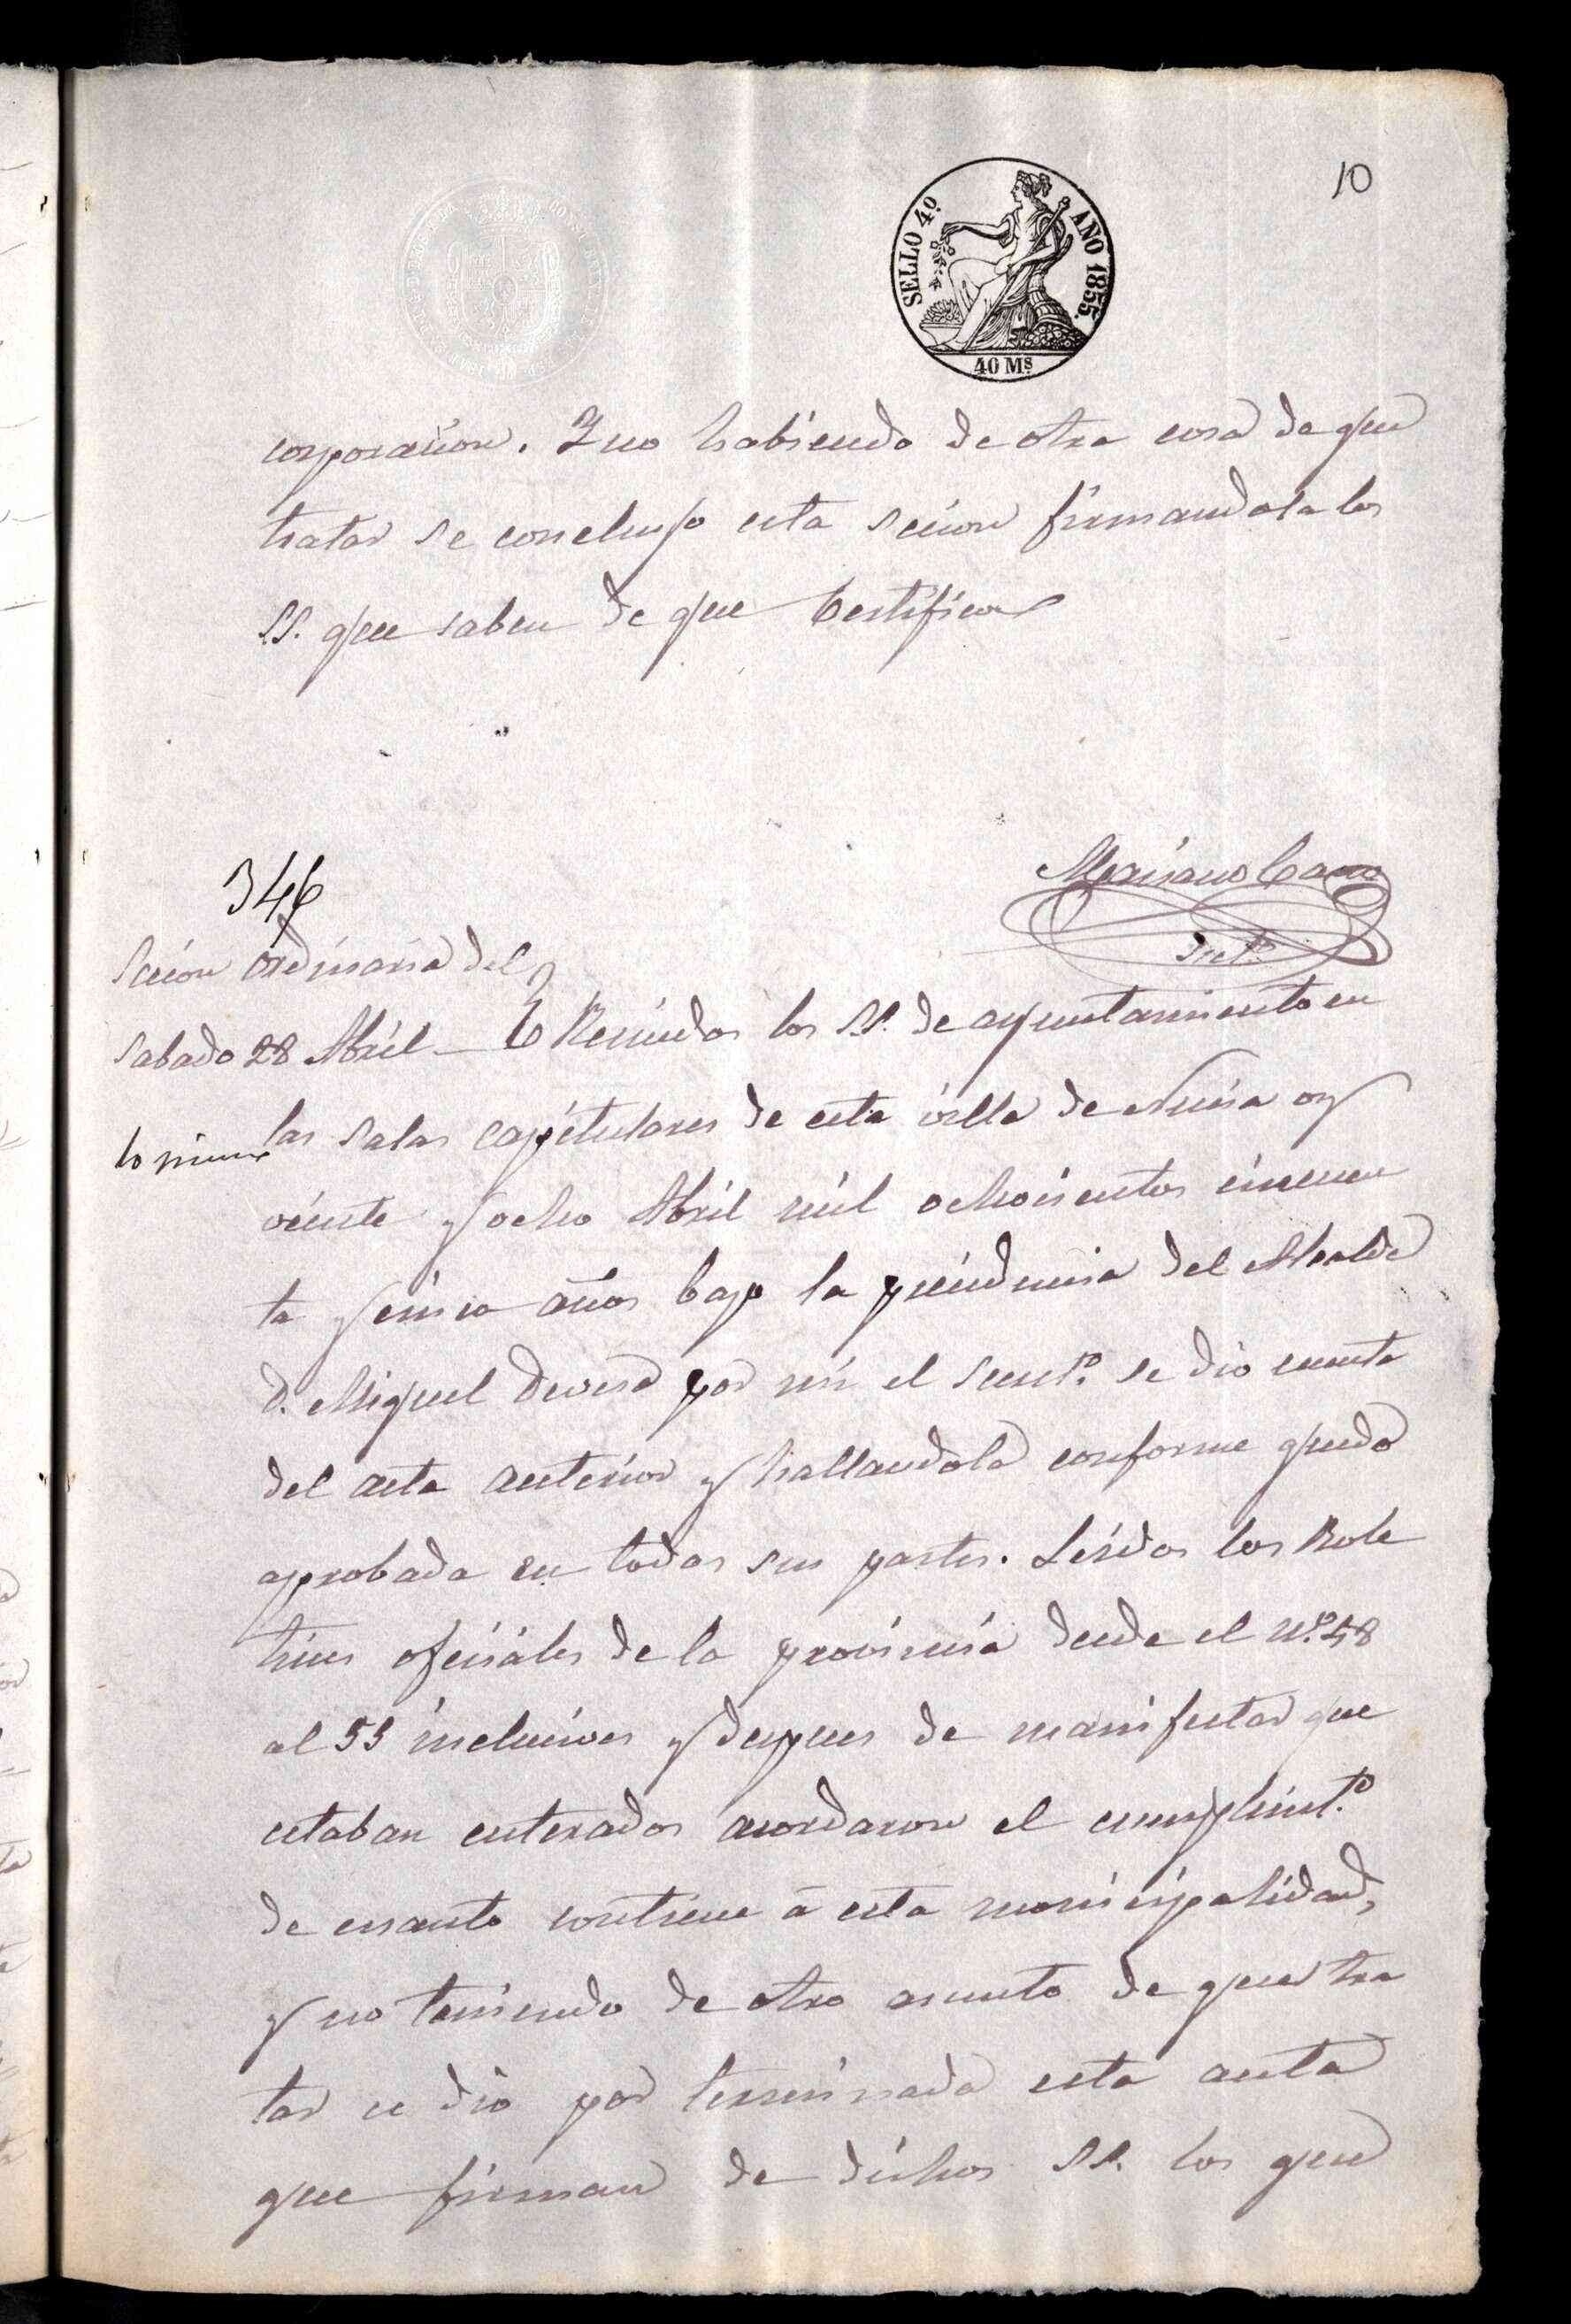 10
SELLO 4º AÑO 1855.
40 Ms
corporacion. Y no habiendo de otra cosa de que
tratar se concluyo esta secion firmandola los
SS. que saben de que Certifico
Mariano Cano
Sretº
346
Secion ordinaria del
Sabado 28 Abril Reunidos los SS. de ayuntamiento en
las salas capitulares de esta villa de Nucia oy
veinte y ocho Abril mil ochocientos cincuen
ta y cinco años bajo la precidencia del Alcalde
D. Miguel Devesa por mi el Secretº. se dio cuenta
del acta anterior y hallandola conforme quedo
aprobada en todas sus partes. Leidos los Bole
tines oficiales de la provincia desde el nº. 48
al 53 inclucives y despues de manifestar que
estaban enterados acordaron el cumplimtº.
de cuanto contiene á esta municipalidad,
y no teniendo de otro asunto de que tra
tar se dio por terminada esta acta
que firman de dichos SS. los que